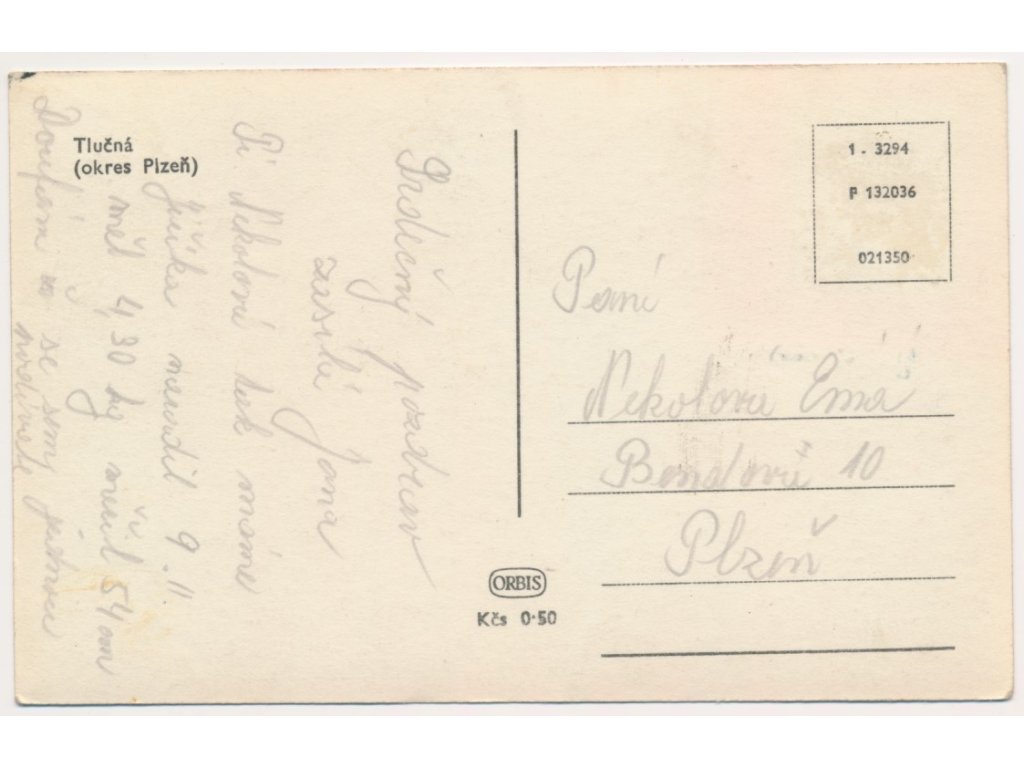 Tlučná
(okres Plzeň)
Srdečný pozdrav
zasílá Jana
Pí Nekolová tak máme
Jiříka narodil 9. 11
měl 4,30 kg měřil 54 cm
Doufám se semy
1 - 3294
P 132036
021350
Paní
Nekolova Ema
10
Plzeň
ORBIS
Kčs 0·50